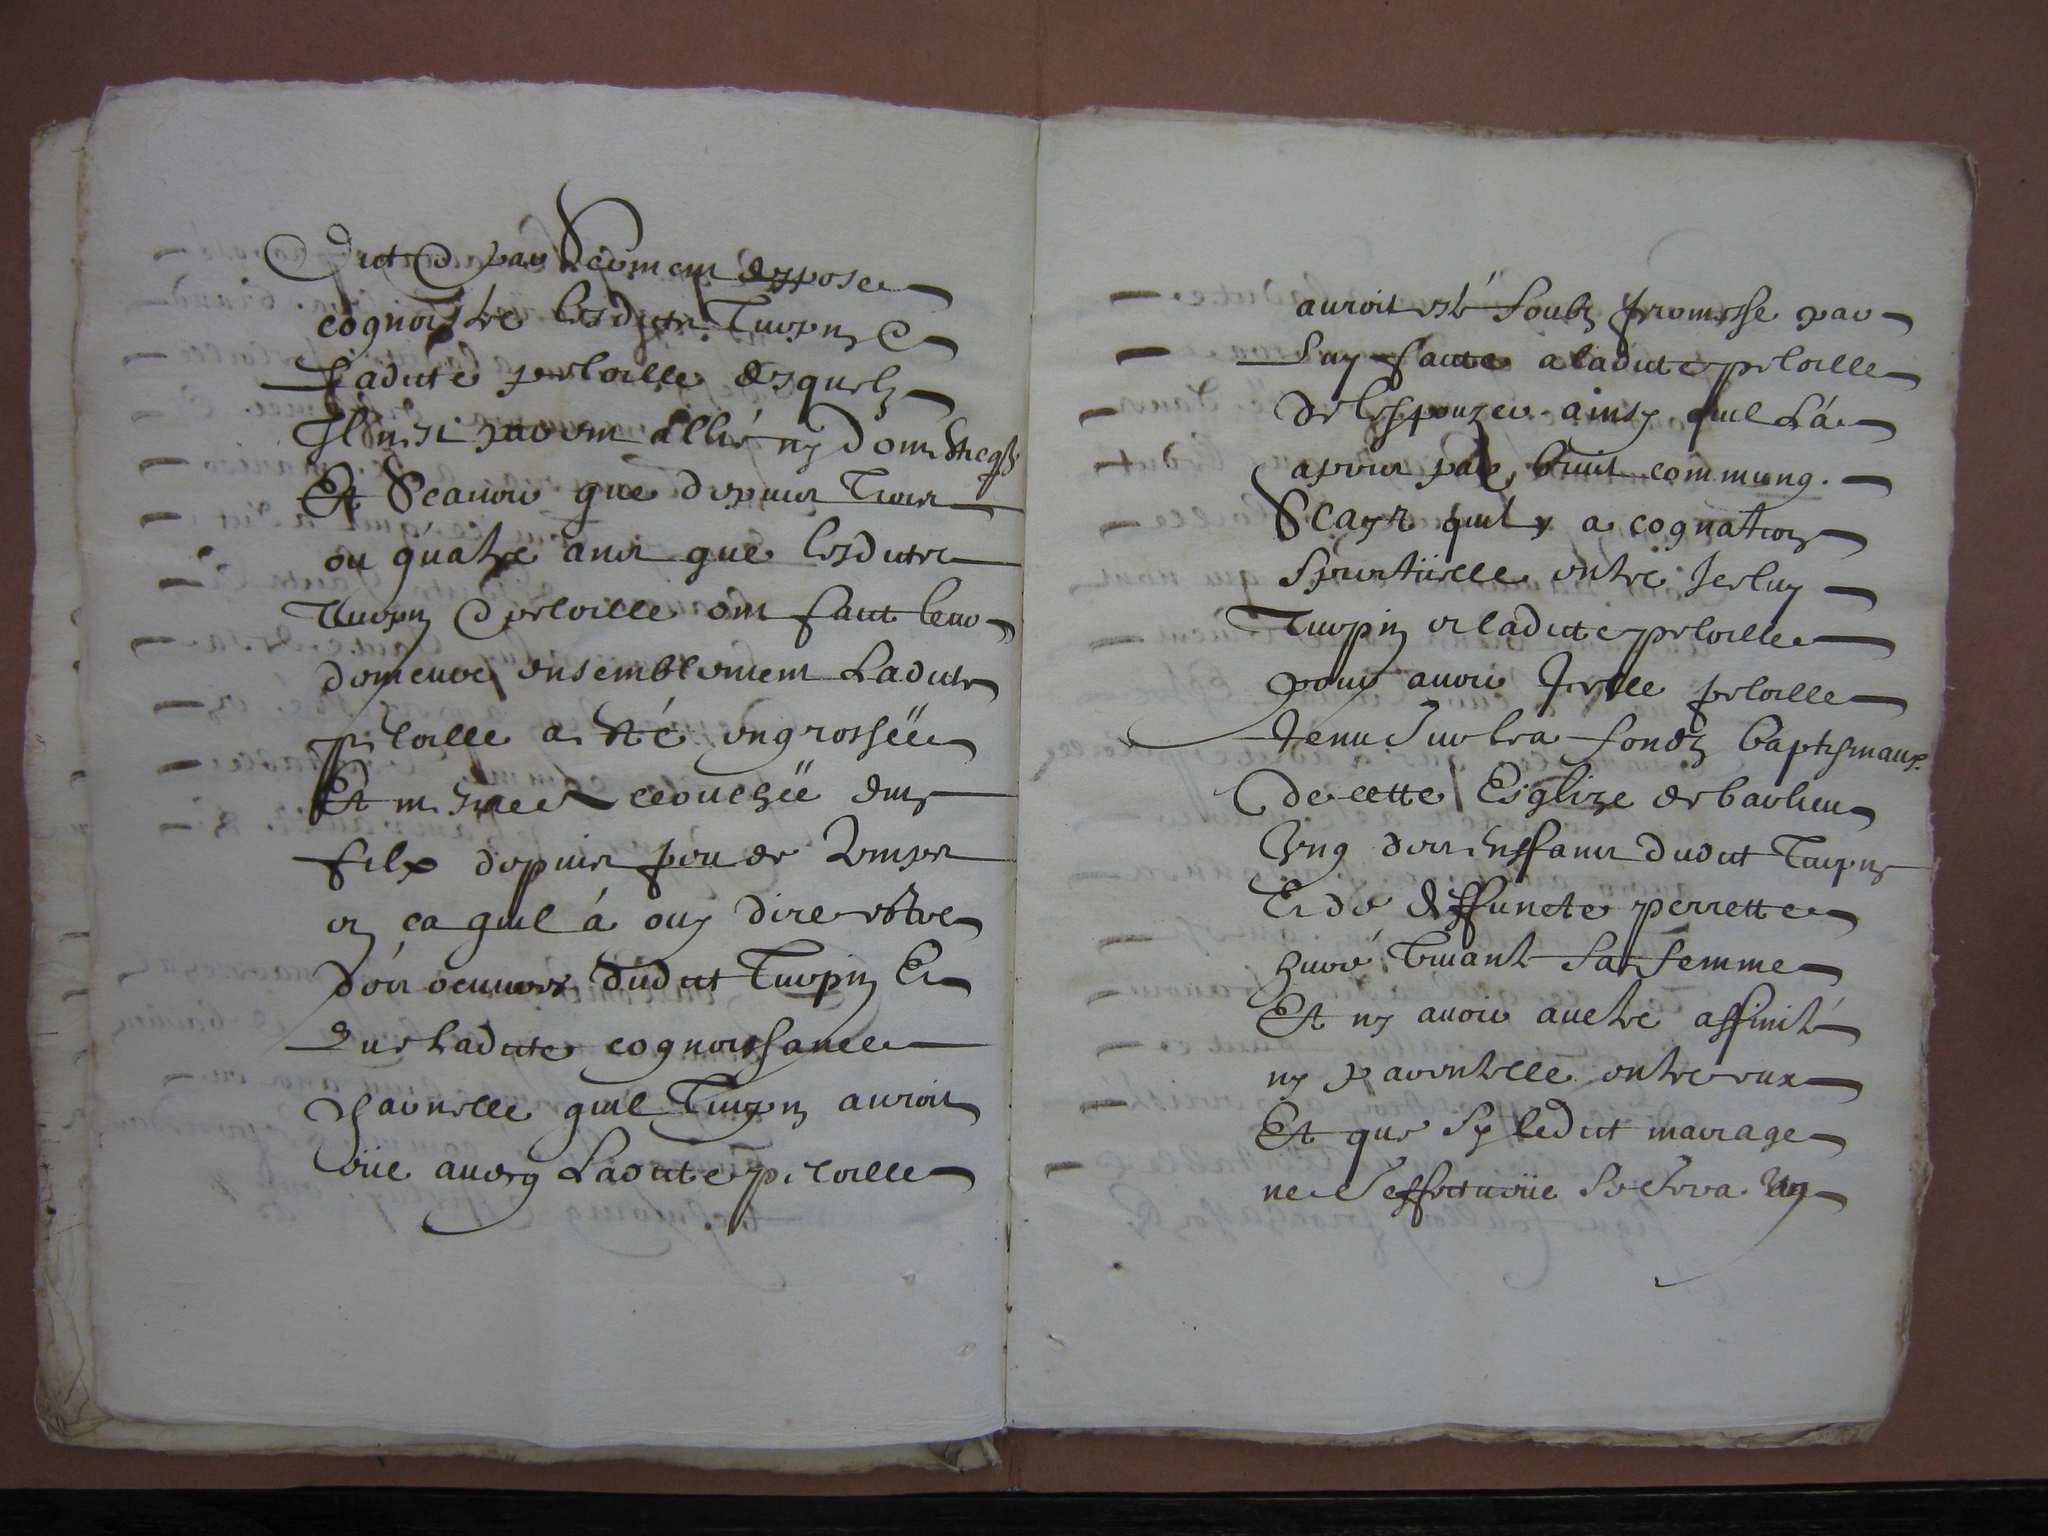 Dict & par serment depose
cognoistre lesdictz Turpin &
Ladicte peloille desquelz
Il nest parent allié ny domesticq
Et Scauoir que depuis trois
ou quatre ans que lesdictz
Turpin & peloille ont faict leur
demeure ensemblement Ladicte
peloille a esté engrossëe
Et accouchëe dung
filx depuis peu de temps
en ca quil á ouy dire estre
des oeuures dudict Turpin Et
que Ladicte cognoissance
charnelle quil Turpin auroit
eüe auecq Ladicte peloille
auroit esté soubz promesse par
luy faicte a ladicte peloille
de lespouzer ainsy quil Lá
apris par bruit commung.
Scayt quil y a cognation
spirituelle entre Icelluy
Turpin et ladicte peloille
pour auoir Icelle peloille
tenu sur les fondz baptismaux
de cette Esglize de barlieu
Ung des enffans dudict Turpin
Et de deffuncte perrette
huré viuant sa femme
Et ny auoir auctre affinité
ny parentelle entre eux
Et que sy ledict mariage
ne s'effectuoit se sera ung